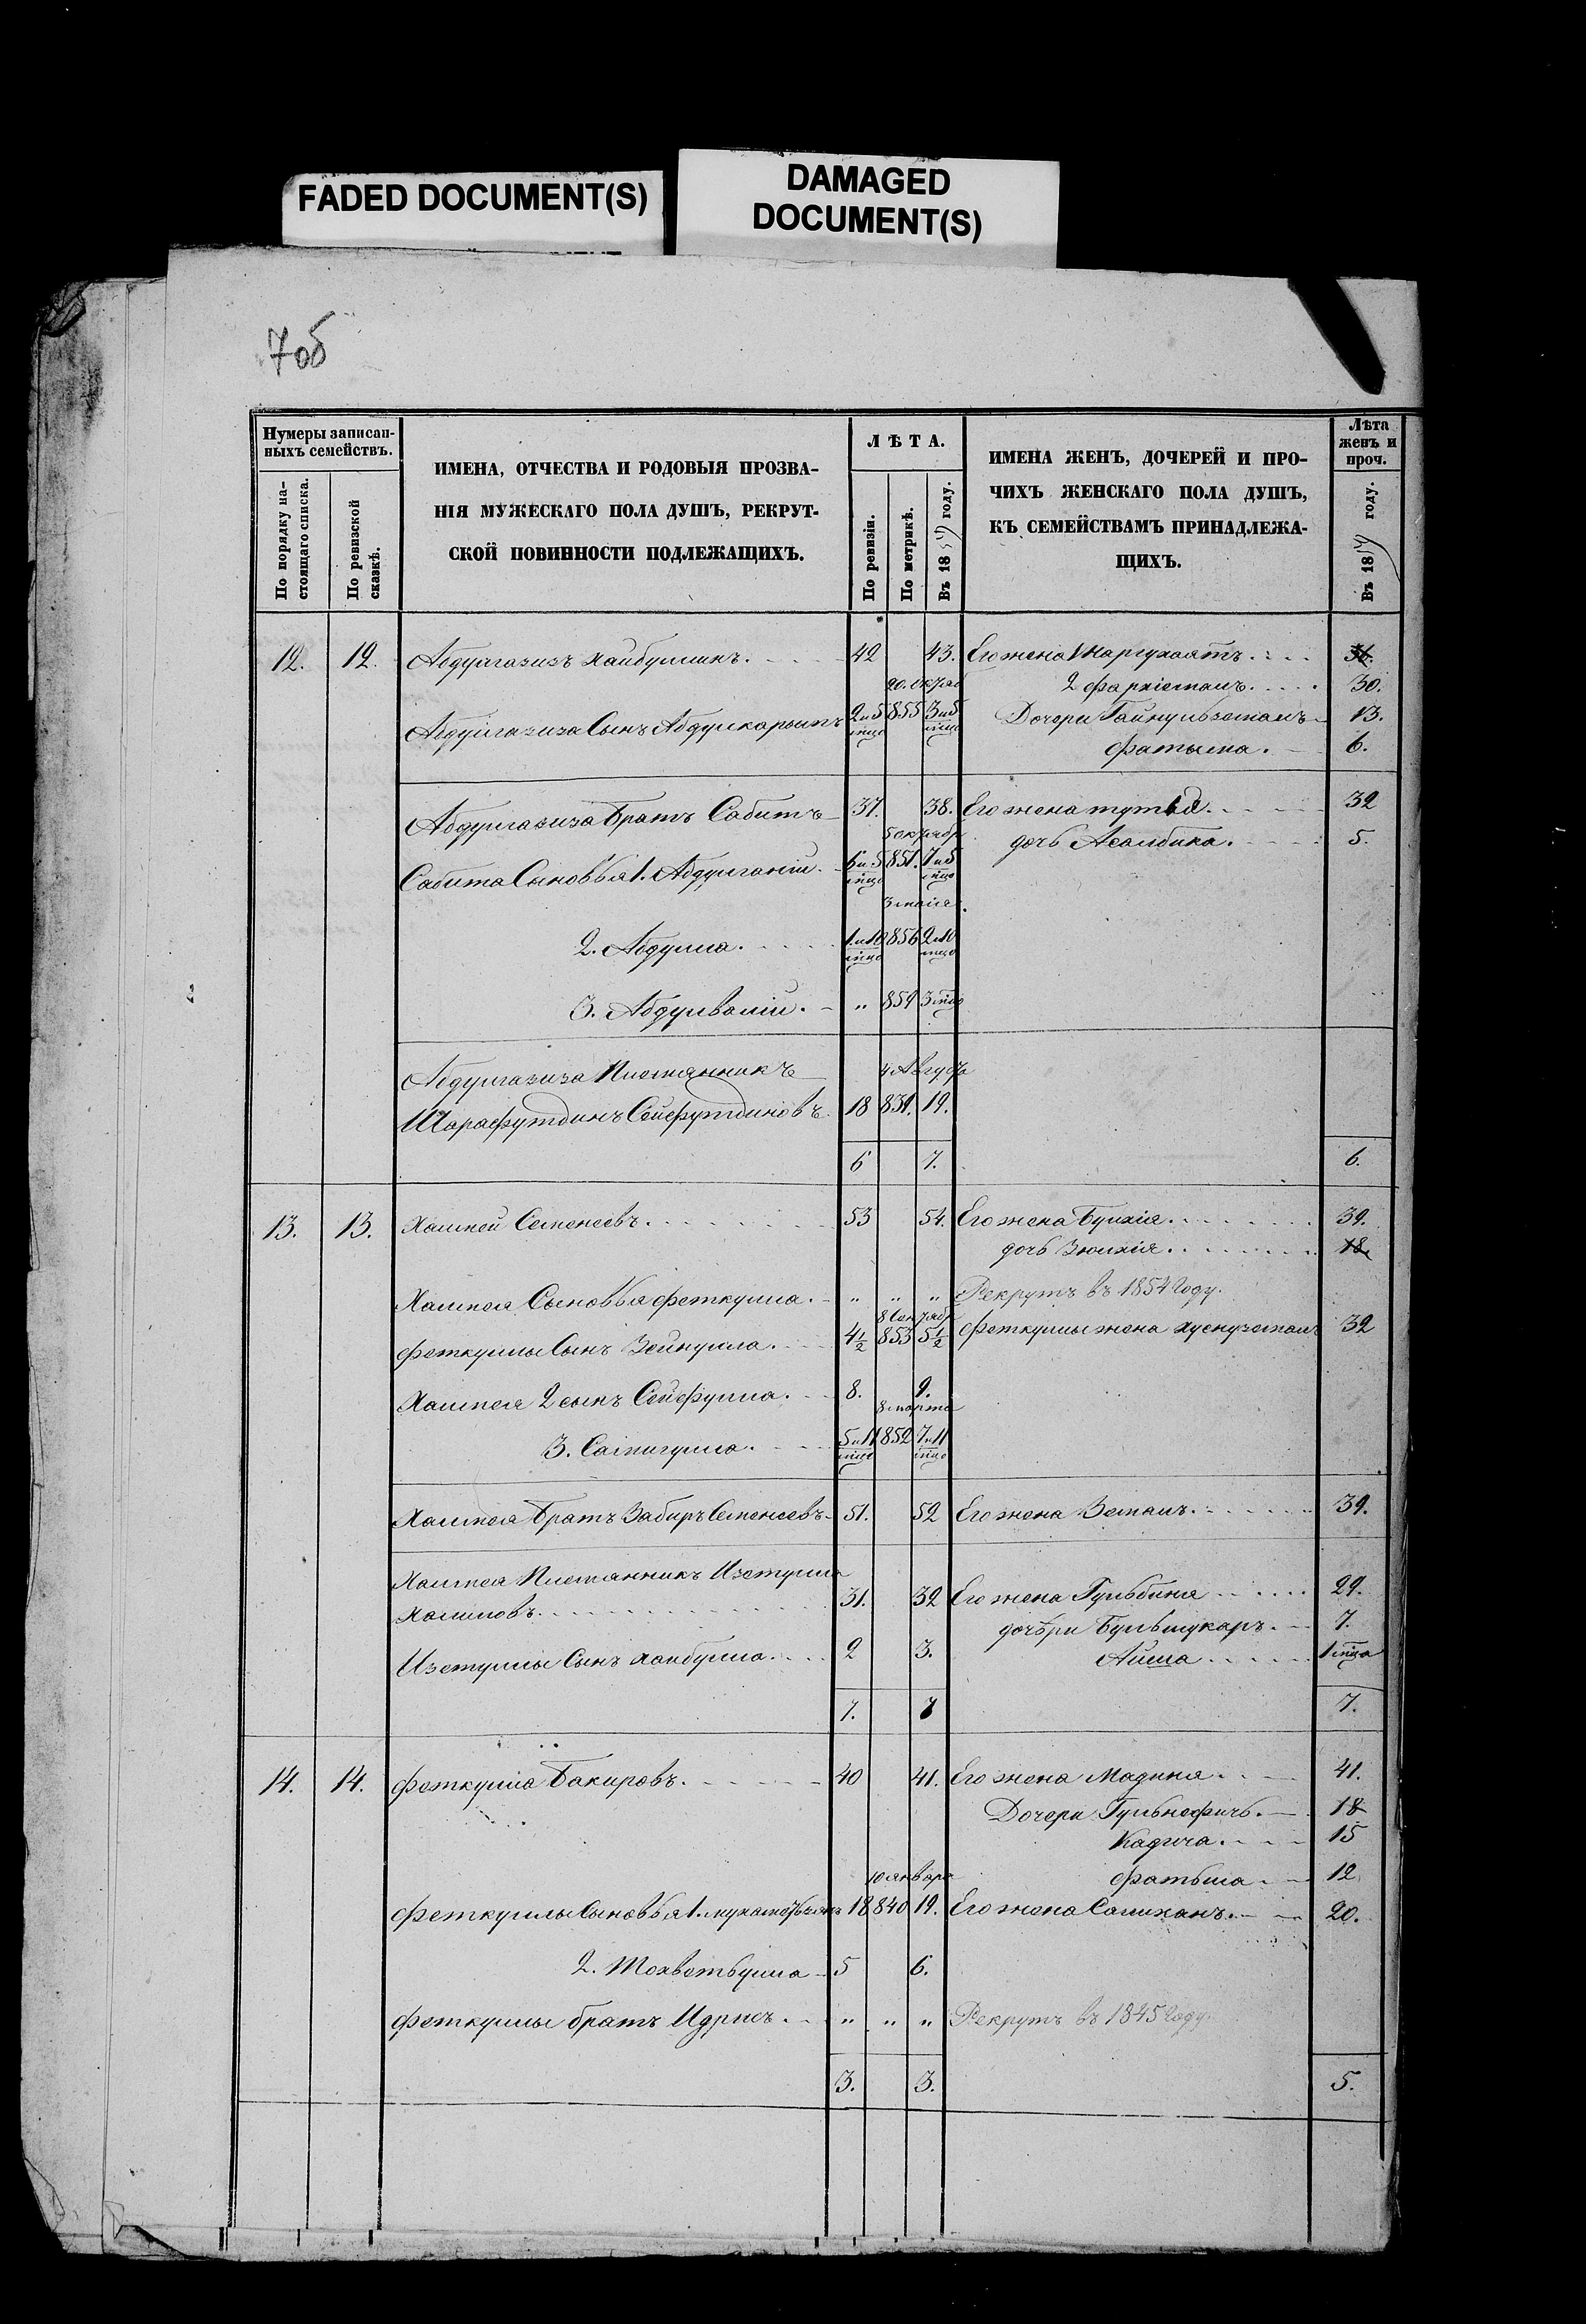 FADED DOCUMENT(S)
DAMAGED
DOCUMENT(S)
7об
Нумеры записан-
ныхъ семействъ.
По порядку на-
стоящаго списка.
По ревизской
сказкѣ.
ИМЕНА, ОТЧЕСТВА И РОДОВЫЯ ПРОЗВА-
НІЯ МУЖЕСКАГО ПОЛА ДУШЪ, РЕКРУТ-
СКОЙ ПОВИННОСТИ ПОДЛЕЖАЩИХЪ.
ЛѢТА.
По ревизіи.
По метрикѣ.
Въ 1859 году.
ИМЕНА ЖЕНЪ, ДОЧЕРЕЙ И ПРО-
ЧИХЪ ЖЕНСКАГО ПОЛА ДУШЪ,
КЪ СЕМЕЙСТВАМЪ ПРИНАДЛЕЖА-
ЩИХЪ.
Лѣта
женъ и
проч.
Въ 1859 году.
12. 12. Абдулгазизъ Хаибуллинъ. 42 43. Его жена 1
20. Октяб 2 30.
Абдулгазиза Сынъ Абдулкарымъ 2 и 5 мцо 855 3 и 5 мцо Дочери Гайнульземалъ 13.
Фатыма. 6.
Абдулгазиза Братъ Сабитъ 37. 38. Его жена 32
5 октябр дочь Асылбика. 5.
Сабита Сыновья 1. Абдулганіи. 6 и 5 мцо 851. 7 и 5 мцо
3 маія
2. Абдулла. 1 и 10 мцо 856 2 и 10 мцо
3. Абдулваліи. „ 859 3 мцо
Абдулгазиза Племянникъ 4 Август
Шарафутдинъ Сейфутдиновъ 18 839. 19.
6 7. 6.
13. 13. Халилей Семенеевъ. 53 54. Его жена 39.
дочь Зюлхія. 18
Сыновья Феткулла. „ „ „ Рекрутъ въ 1854 году.
8 Сентябр
Феткуллы Сынъ Зейнулла. 4½ 853 5½ Феткуллы жена 32
2 сынъ Сейфулла. 8. 9.
8 марта
3. 5 и 11 мцо 852 7 и 11 мцо
Братъ Забиръ Семенеевъ 51. 52 Его жена Земалъ. 39.
Племянникъ Изетулла
Халиловъ. 31. 32 Его жена Гульбина 29.
дочери 7.
Изетуллы Сынъ Хаибулла. 2 3. Айша 1 мцо
7. 7.
14. 14. Феткулла Бакировъ. 40 41. Его жена Мадина. 41.
Дочери 18
15
10 января Фатыма 12
Феткуллы Сыновья 1. 18 840 19. Его жена 20.
2. 5 6.
Феткуллы братъ Идрисъ. „ „ „ Рекрутъ въ 1845 году.
3. 3. 5.